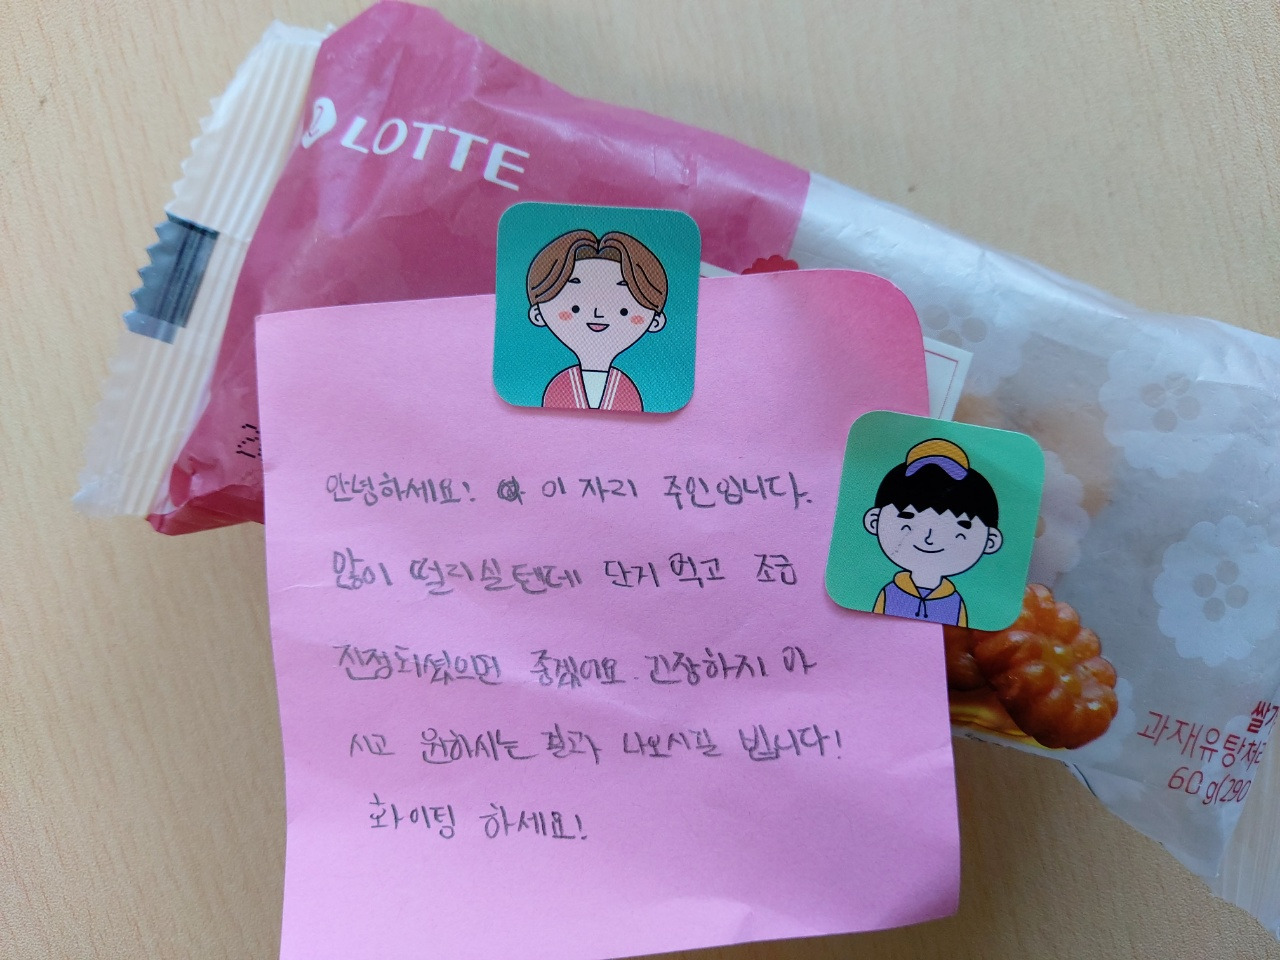 LOTTE
안녕하세요! 이 자리 주인입니다.
많이 떨리실텐데 단거 먹고 조금
진정되셨으면 좋겠어요. 긴장하지 마
시고 원하시는 결과 나오시길 빕니다!
화이팅 하세요!
과재유탕처
60g(290